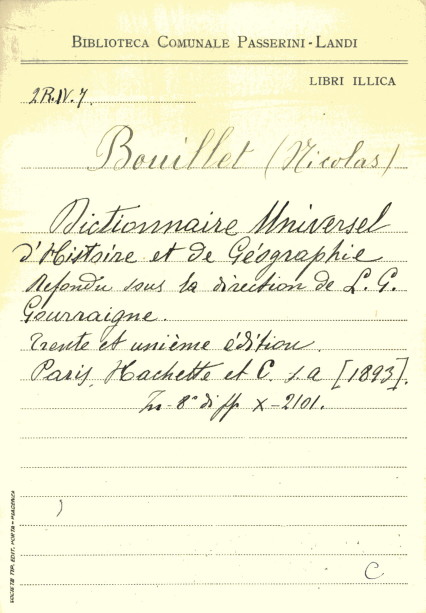 BIBLIOTECA COMUNALE PASSERINI-LANDI
LIBRI ILLICA
2R.IV.7.
Bouillet (Nicolas)
Dictionnaire Universel
d'Histoire et de Géographie
Refondu sous la direction de L. G.
Gourraigne.
Trente et unième édition.
Paris, Hachette et C. s. a [1893].
In-8° di pp X-2101.
)
C
SOCIETÀ TIP. EDIT. PORTA - PIACENZA